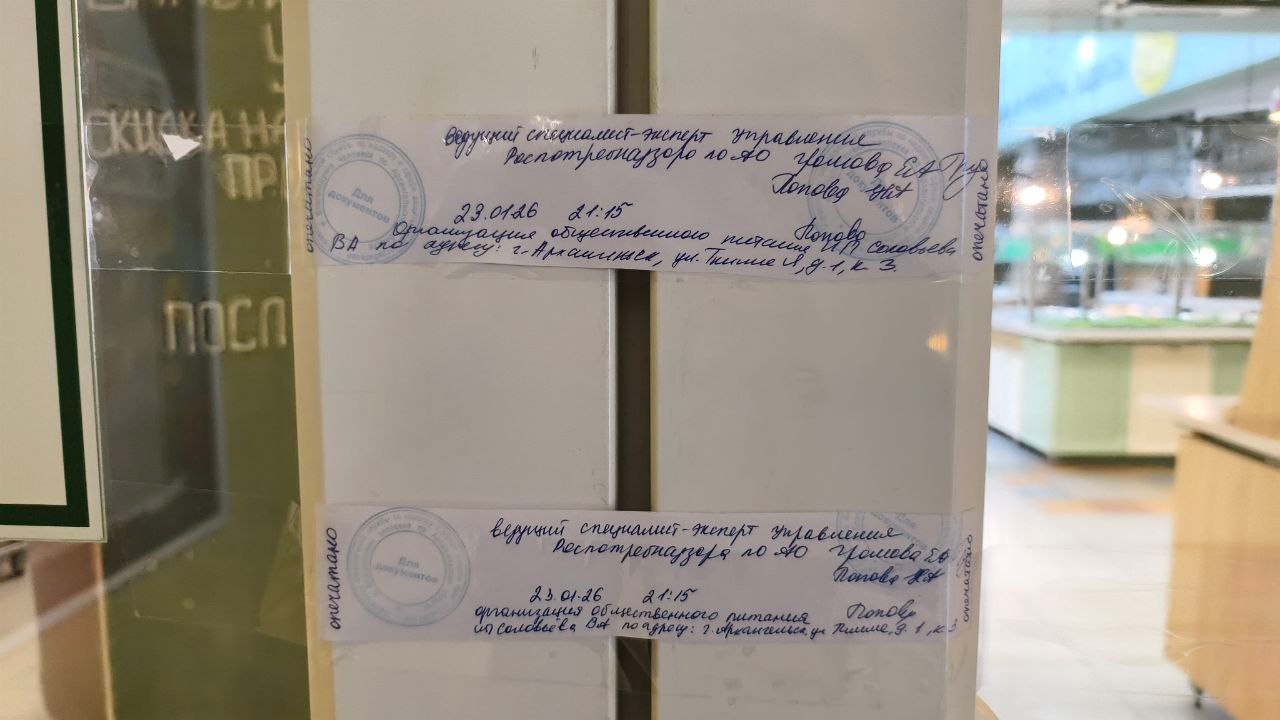 СКИДКА НА
ПР
ПОСЛ
опечатано
Для
документов
ведущий специалист-эксперт Управления
Роспотребнадзора по АО Громова ЕА
Попова НА
23.01.26 21:15
Попова
организация общественного питания ИП Соловьева
ВА по адресу: г. Архангельск, ул. Тимме Я, д. 1, к. 3.
опечатано
опечатано
Для
документов
ведущий специалист-эксперт Управления
Роспотребнадзора по АО Громова ЕА
Попова НА
23.01.26 21:15
Попова
организация общественного питания
ИП Соловьева ВА по адресу: г. Архангельск, ул Тимме, д. 1, к 3.
Для
опечатано